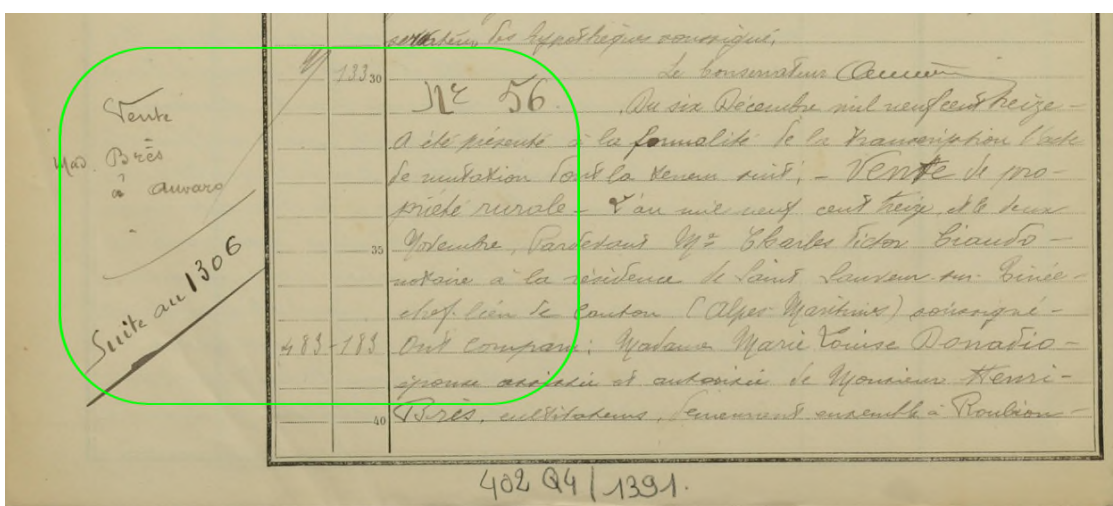 servateur des hypothèques soussigné,
Le Conservateur
133 30
Nº 56. Du six Décembre mil neuf cent treize -
A été présenté à la formalité de la transcription l'acte
de mutation dont la teneur suit; - Vente de pro-
priété rurale - L'an mil neuf cent treize, et le deux
35 Novembre, Pardevant Mº Charles Victor Ciaudo -
notaire à la résidence de Saint Sauveur-sur-Tinée -
chef-lieu de Canton (Alpes-Maritimes) soussigné -
483-183 Ont comparu: Madame Marie Louise Donadio -
épouse assistée et autorisée de Monsieur Henri -
40 Brès, cultivateurs, demeurant ensemble à Roubion -
Vente
Mad. Brès
à
Suite au 1306
402 Q4 / 1391.